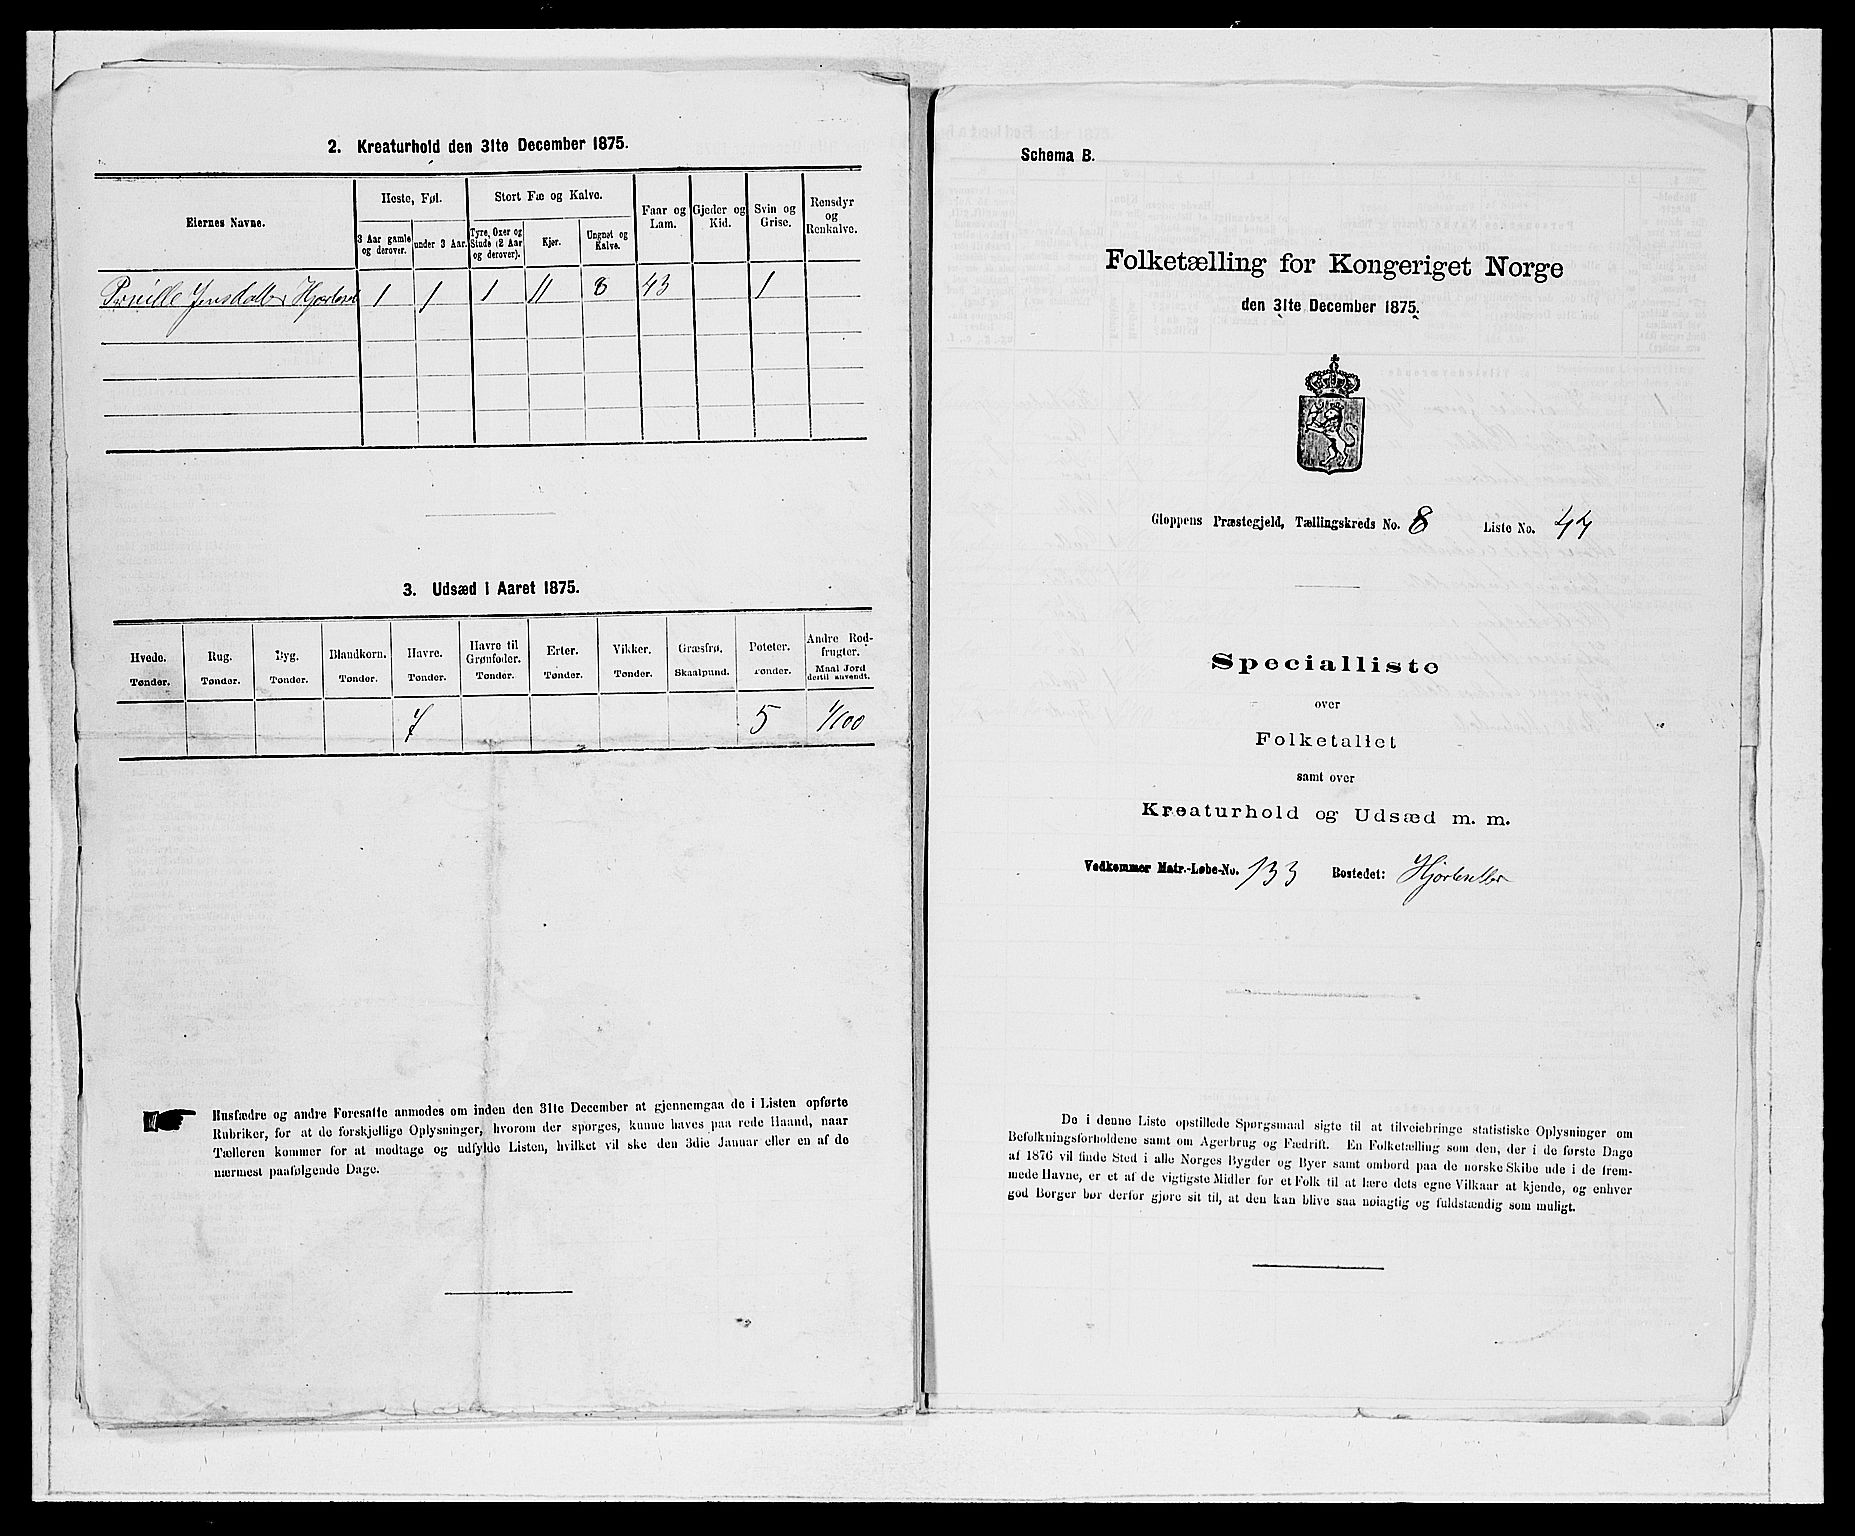 2. Kreaturhold den 31te December 1875.
Eiernes Navne.
Heste, Føl.
3 Aar gamle og derover.
under 3 Aar.
Stort Fæ og Kalve.
Tyre, Oxer og Stude (2 Aar og derover).
Kjør.
Ungnøt og Kalve.
Faar og Lam.
Gjeder og Kid.
Svin og Grise.
Rensdyr og Renkalve.
Jensdatter 1 1 1 11 8 43 1
3. Udsæd i Aaret 1875.
Hvede. Tønder.
Rug. Tønder.
Byg. Tønder.
Blandkorn. Tønder.
Havre. Tønder.
Havre til Grønfoder. Tønder.
Erter. Tønder.
Vikker. Tønder.
Græsfrø. Skaalpund.
Poteter. Tønder.
Andre Rodfrugter. Maal Jord dertil anvendt.
7 5 1/100
Husfædre og andre Foresatte anmodes om inden den 31te December at gjennemgaa de i Listen opførte
Rubriker, for at de forskjellige Oplysninger, hvorom der spørges, kunne haves paa rede Haand, naar
Tælleren kommer for at modtage og udfylde Listen, hvilket vil ske den 3die Januar eller en af de
nærmest paafølgende Dage.
Schema B.
Folketælling for Kongeriget Norge
den 31te December 1875.
Gloppens Præstegjeld, Tællingskreds No. 8 Liste No. 44
Specialliste
over
Folketallet
samt over
Kreaturhold og Udsæd m. m.
Vedkommer Matr.-Løbe-No. 133 Bostedet:
De i denne Liste opstillede Spørgsmaal sigte til at tilveiebringe statistiske Oplysninger om
Befolkningsforholdene samt om Agerbrug og Fædrift. En Folketælling som den, der i de første Dage
af 1876 vil finde Sted i alle Norges Bygder og Byer samt ombord paa de norske Skibe ude i de frem-
mede Havne, er et af de vigtigste Midler for et Folk til at lære dets egne Vilkaar at kjende, og enhver
god Borger bør derfor gjøre sit til, at den kan blive saa nøiagtig og fuldstændig som muligt.